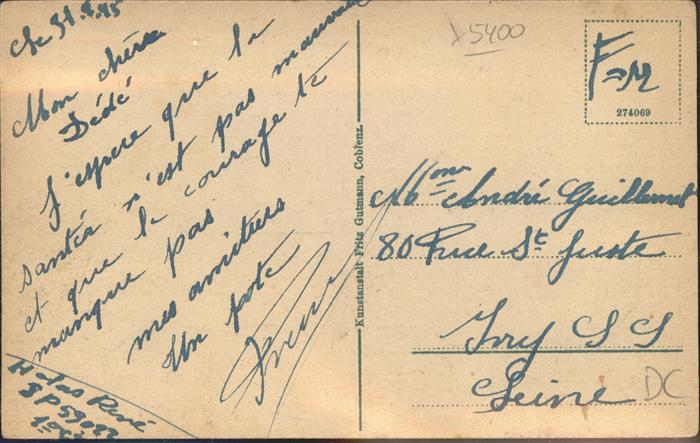 Le 31.8.45
Mon chère
Dédé
J'espere que la
santér n'est pas mauvaise
et que le courage te
manque pas
mes amitiers
Un pote
René
Halas René
SP 59022
x5400
F=M
274069
Kunstanstalt Fritz Gutmann, Coblenz.
Mon André Guillemot
80 Rue St Juste
Ivry S S
Seine
DC